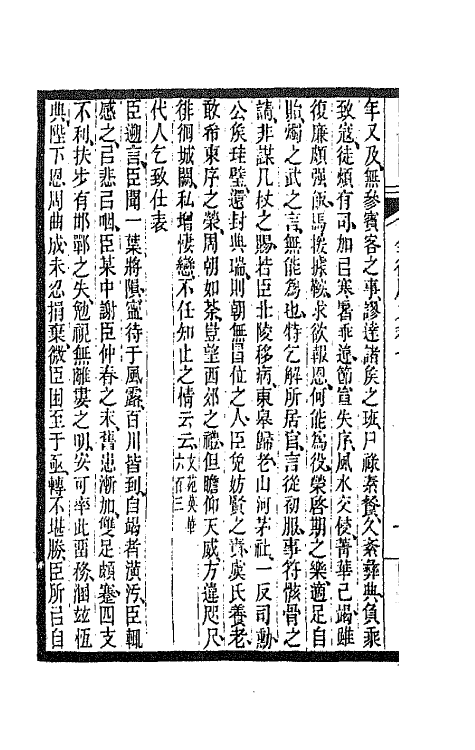 年又及無參賓客之事謬達諸矦之班尸祿素餐久紊彝典負乘
致寇徒煩有司加㠯寒暑乖違節宣失序風水交侵菁華已竭雖
復廉頗强飯馬援據鞍求欲報恩何能爲役榮啓期之樂適足自
貽燭之武之言無能爲也特乞解所居官言從初服事符骸骨之
請非謀几杖之賜若臣北陵移病東皋歸老山河茅社一反司勳
公矦珪璧還封典瑞則朝無冒位之人臣免妨賢之責虞氏養老
敢希東序之榮周朝如荼豈望西郊之禮但瞻仰天威方違咫尺
徘徊城闕私增悽戀不任知止之情云云文苑英華六百三
代人乞致仕表
臣迥言臣聞一葉將隕寧待于風露百川皆到自竭者潢汚臣輒
感之㠯悲㠯咽臣某中謝臣仲春之末舊患漸加雙足頗蹇四支
不利扶步有邯鄲之失勉視無離婁之明安可率此罷務涸茲恆
典陛下恩周曲成未忍捐棄微臣困至于亟轉不堪勝臣所㠯自